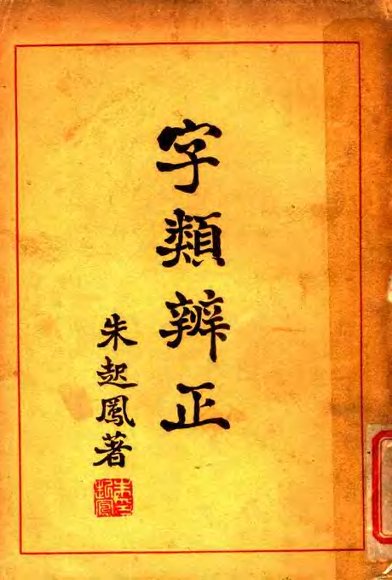 字類辨正
朱起鳳著